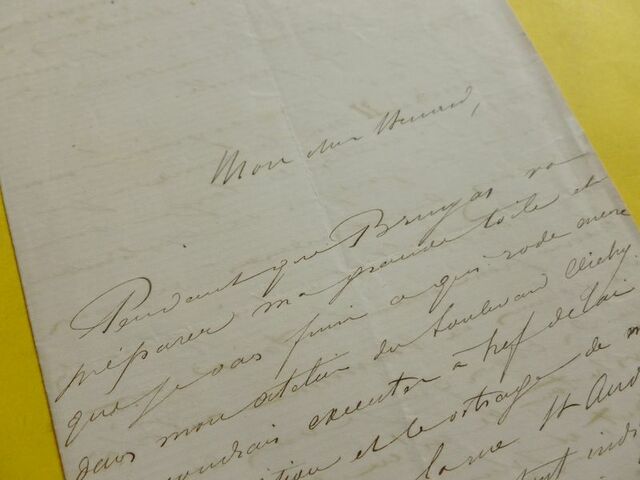 Mon cher
Pendant que Bruyas va
préparer ma grande toile et
que je vais finir ce qui rode encore
dans mon atelier du boulevard Clichy.
voudrais executer à
et le
la rue St And